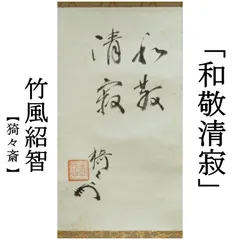 「和敬清寂」
和敬
清寂
猗々斎
竹風紹智
【猗々斎】